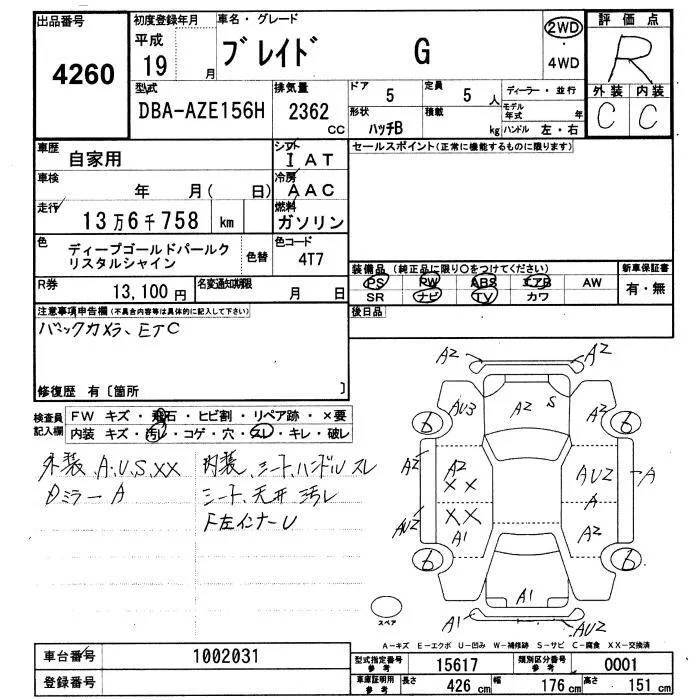 出品番号 初度登録年月 車名・グレード 2WD 評価点
4260 平成 19 月 ブレイド G 4WD R
型式 排気量 ドア 5 定員 5 人 ディーラー・並行 外装 内装
DBA-AZE156H 2362 CC 形状 ハッチB 積載 kg モデル年式 年 ハンドル 左・右 C C
車歴 自家用 シフト I A T セールスポイント(正常に機能するものに限ります)
車検 年 月( 日) 冷房 A A C
走行 13万6千758 km 燃料 ガソリン
色 ディープゴールドパールク 色替 色コード 4T7
リスタルシャイン
装備品(純正品に限り○をつけてください) 新車保証書
R券 13,100円 名変通知期限 月 日 PS PW ABS エアB AW 有・無
SR ナビ TV カワ
注意事項申告欄(不具合内容等は具体的に記入して下さい) 後日品
バックカメラ、ETC
修復歴 有〔箇所 〕
検査員 FW キズ・飛石・ヒビ割・リペア跡・×要
記入欄 内装 キズ・汚レ・コゲ・穴・スレ・キレ・破レ
外装、A、U、S、XX 内装、シート、ハンドルスレ
Dミラー A シート、天井汚レ
F左インナーU
A2 A2
AU3 A2 S A2
6 6
A2 A2 XX AU2 A
A
AU2 XX A1 A2
6 6
A1
A1 AU2
スペア
A-キズ E-エクボ U-凹み W-補修跡 S-サビ C-腐食 XX-交換済
車台番号 1002031 型式指定番号 参考 15617 類別区分番号 参考 0001
登録番号 車庫証明用 参考 長さ 426 cm 幅 176 cm 高さ 151 cm